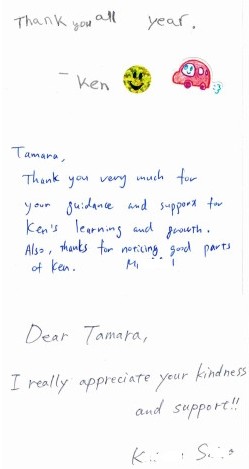 Thank you all year.
- Ken
Tamara,
Thank you very much for
your guidance and support for
Ken's learning and growth.
Also, thanks for noticing good parts
of Ken.
Dear Tamara,
I really appreciate your kindness
and support!!